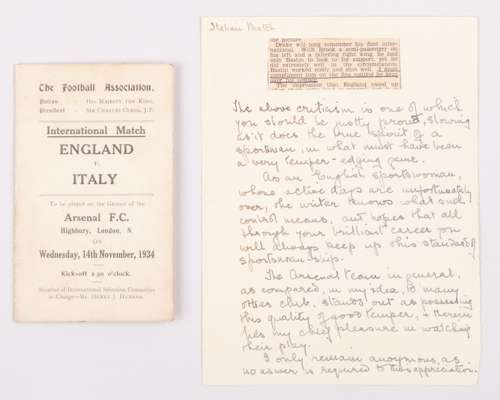 The Football Association.
Patron - His Majesty the King.
President - Sir Charles Clegg, J.P.
International Match
ENGLAND
v.
ITALY
To be played on the Ground of the
Arsenal F.C.
Highbury, London, N.
ON
Wednesday, 14th November, 1934
Kick-off 2.30 o'clock.
Member of International Selection Committee
in Charge—Mr. Henry J.
Italian Match
the picture.
Drake will long remember his first inter-
national. With Brook a semi-passenger on
his left and a faltering right wing, he had
only Bastin to look to for support, yet he
did extremely well in the circumstances.
Bastin worked nobly and shot well. I must
compliment him on the fine control he kept
over his temper.
The impression that England owed up
The above criticism is one of which
you should be justly proud, showing
as it does the true spirit of a
sportsman, in what must have been
a very temper-edging game.
As an English sportswoman,
whose active days are unfortunately
over, the writer knows what such
control means, and hopes that all
through your brilliant career you
will always keep up this standard of
sportsmanship.
The Arsenal team in general,
as compared, in my idea, to many
other club, stands out as possessing
this quality of good temper, & therein
lies my chief pleasure in watching
their play.
I only remain anonymous, as
no answer is required to this appreciation.